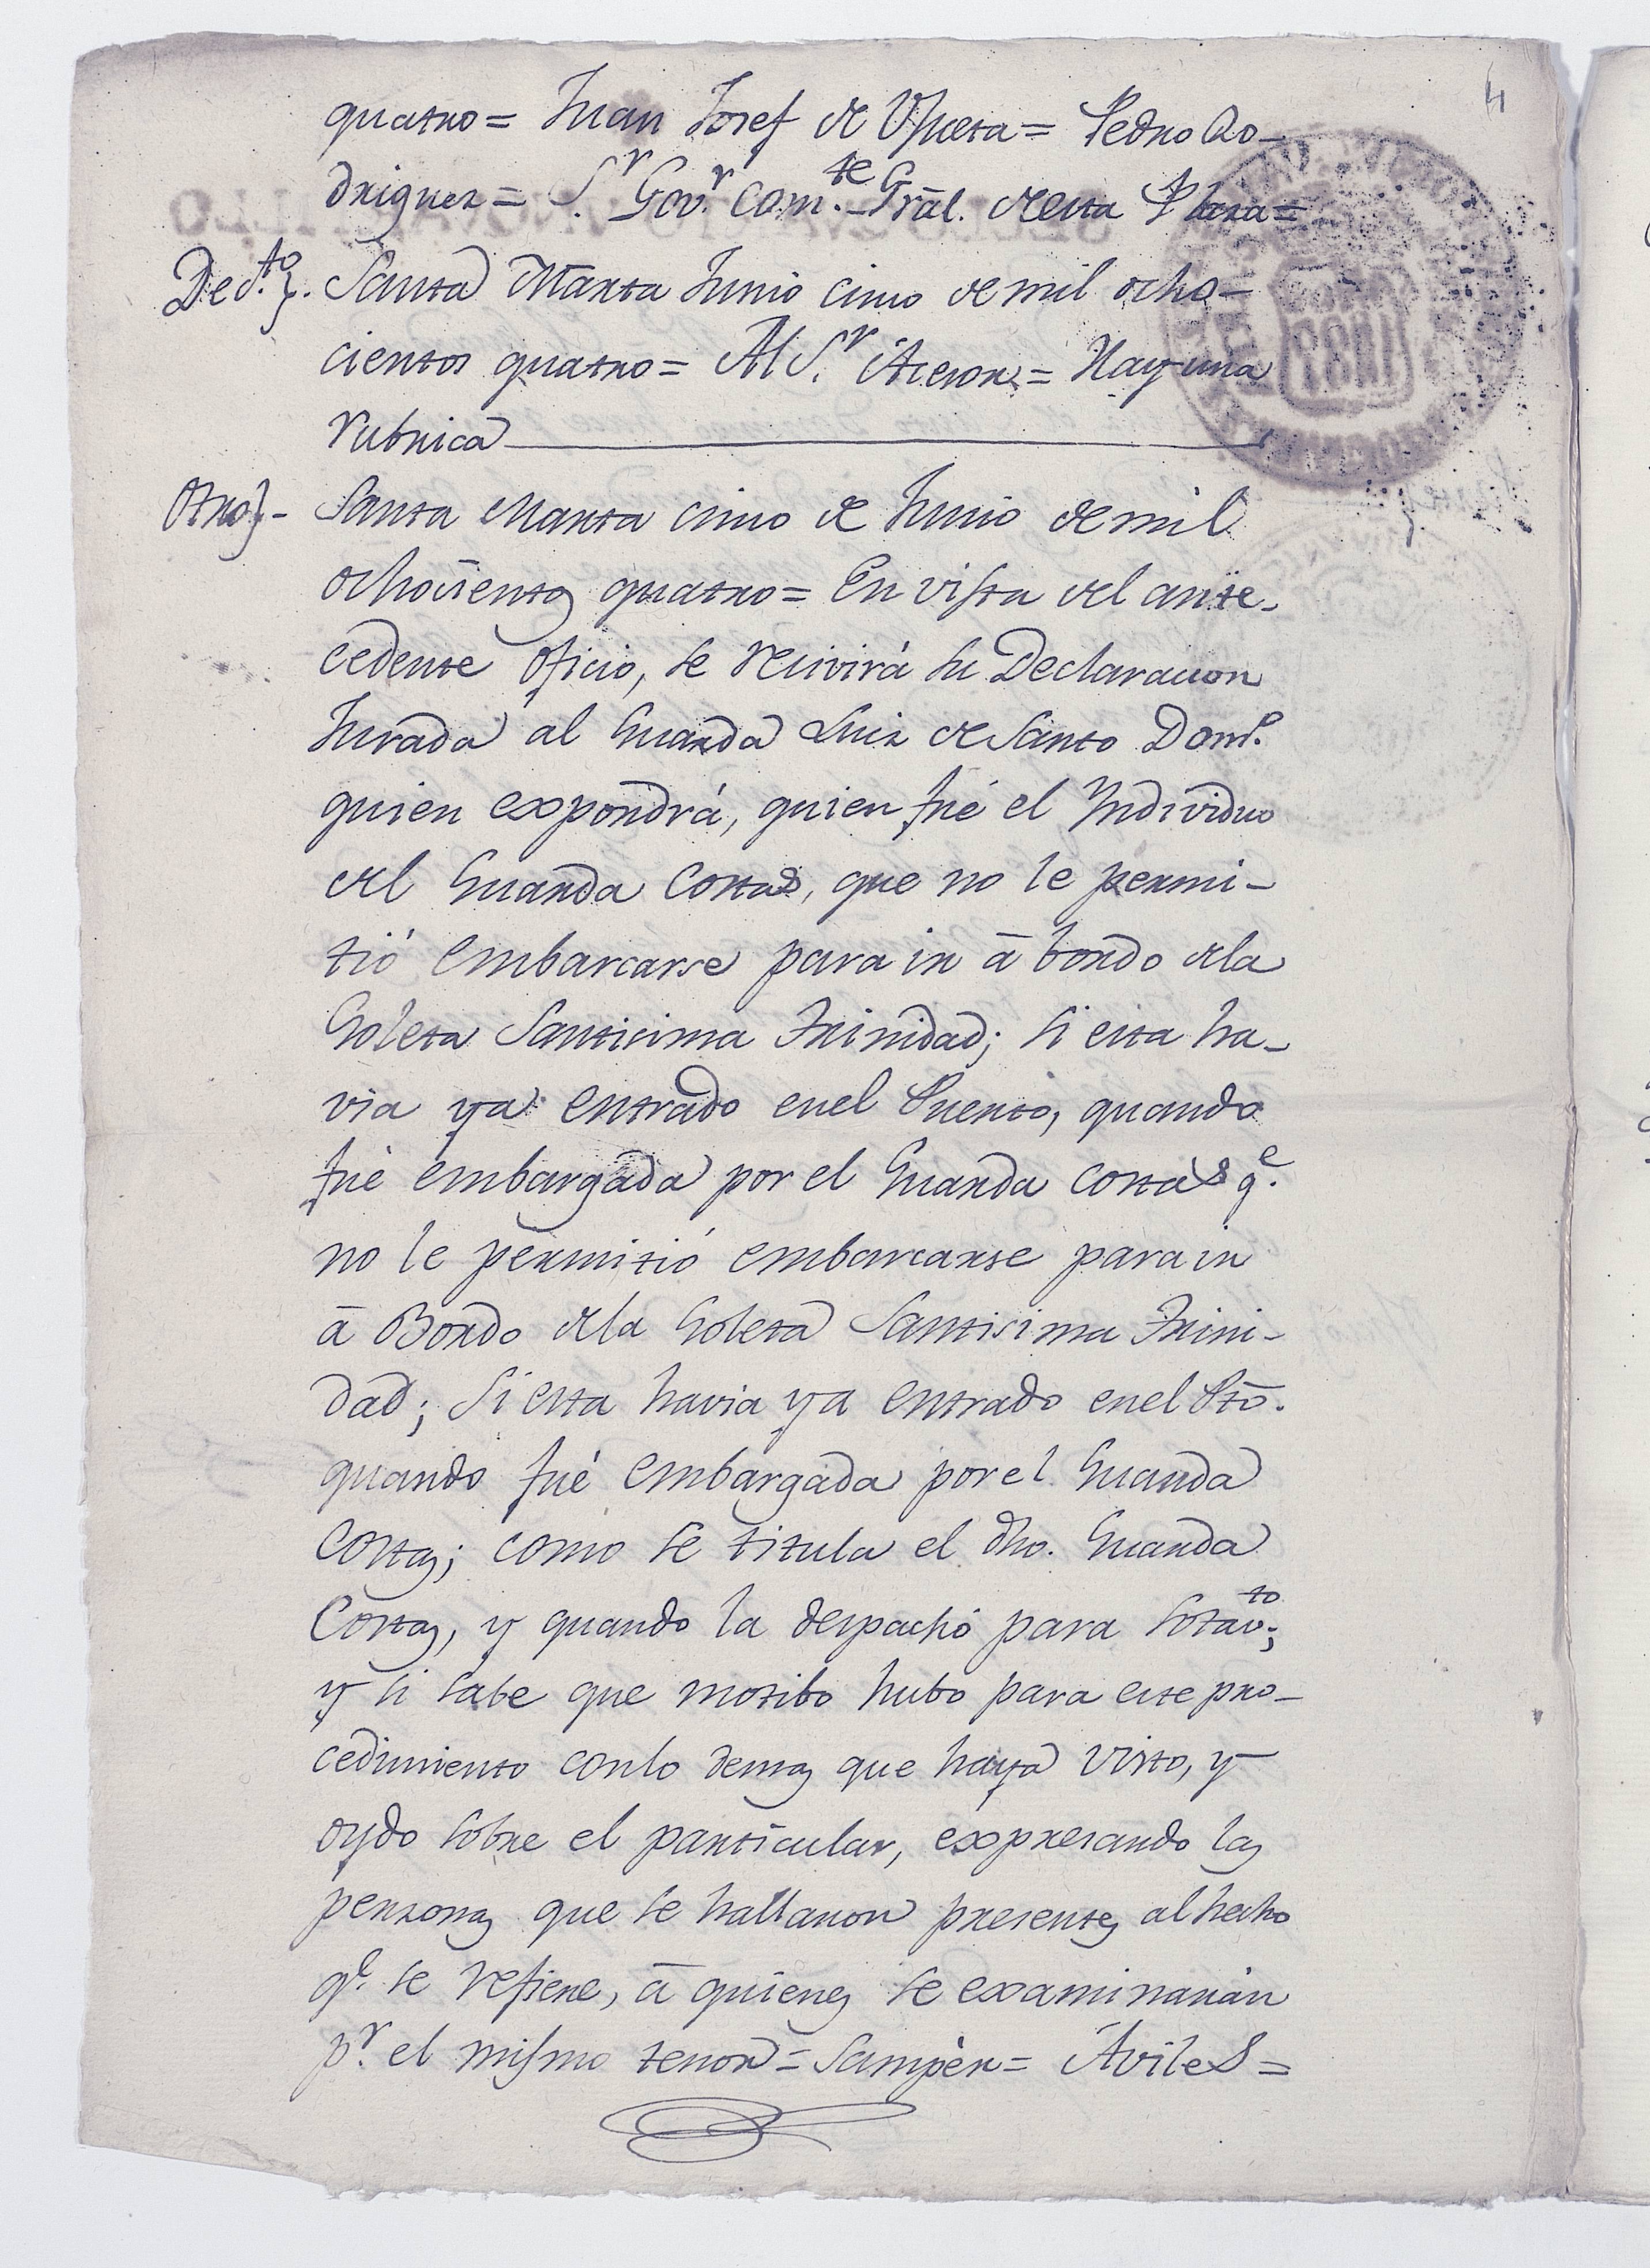 4
quatro = Juan Josef de Uqueta = Pedro Ro-
driguez = S.r Gov.r Com.te Grāl. de esta Plaza =
Dec.to}. Santa Marta Junio cinco de mil ocho-
cientos quatro = Al S.r Acesor = Hay una
rubrica
Otro}- Santa Marta cinco de Junio de mil
ochocientos quatro = En vista del ante-
cedente oficio, se recivirá su Declaracion
Jurada al Guarda Luiz de Santo Dom.o
quien expondrá, quien fué el Individuo
del Guarda Costas, que no le permi-
tió embarcarse para ir ā bordo de la
Goleta Santicima Trinidad; si esta ha-
via ya entrado en el Puerto, quando
fué embargada por el Guarda costas q.e
no le permitió embarcarse para ir
ā Bordo de la Goleta Santisima Trini-
dad; si esta havia ya entrado en el Ptō.
quando fué embargada por el Guarda
Costas; como se titula el dho. Guarda
Costas, y quando la despachó para Sotav.to;
y si sabe que motibo hubo para este pro-
cedimiento con lo demas que haya visto, y
oydo sobre el particular, expresando las
personas que se hallaron presentes al hecho
q.e se refiere, ā quienes se examinarán
p.r el mismo tenor = Sampèr = Aviles =